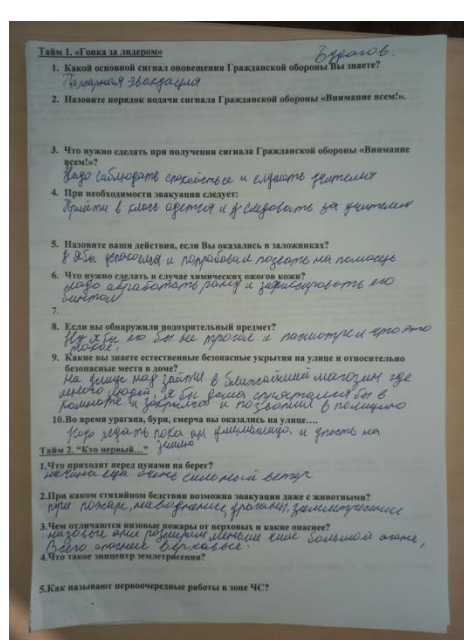 Тайм 1. «Гонка за лидером»
1. Какой основной сигнал оповещения Гражданской обороны Вы знаете?
Пажарная эвакуация
2. Назовите порядок подачи сигнала Гражданской обороны «Внимание всем!».
3. Что нужно сделать при получении сигнала Гражданской обороны «Внимание
всем!»?
Надо соблюдать спокойствие и слушать учителя
4. При необходимости эвакуации следует:
Прийти в класс одется и следовать за учителем
5. Назовите ваши действия, если Вы оказались в заложниках?
Я бы успокоился и попробовал позвать на помощь
6. Что нужно сделать в случае химических ожогов кожи?
надо обработать рану и зафиксировать его
бинтом
7.
8. Если вы обнаружили подозрительный предмет?
Ну я бы его бы не трогал и посмотрел что это
такое.
9. Какие вы знаете естественные безопасные укрытия на улице и относительно
безопасные места в доме?
На улице над зайти в ближайший магазин где
много людей, я бы дома спрятался бы в
комнате и закрылся и позвонил в полицию
10.Во время урагана, бури, смерча вы оказались на улице….
Надо ждать пока он и упасть на
землю
Тайм 2. “Кто первый...”
1.Что приходит перед цунами на берег?
очень сильный ветер
2.При каком стихийном бедствии возможна эвакуация даже с животными?
при пожаре, наводнение, ураганы, землетрясение
3.Чем отличаются низовые пожары от верховых и какие опаснее?
низовые они размером меньше большой огонь,
Всего опаснее верховые.
4.Что такое эпицентр землетрясения?
5.Как называют первоочередные работы в зоне ЧС?